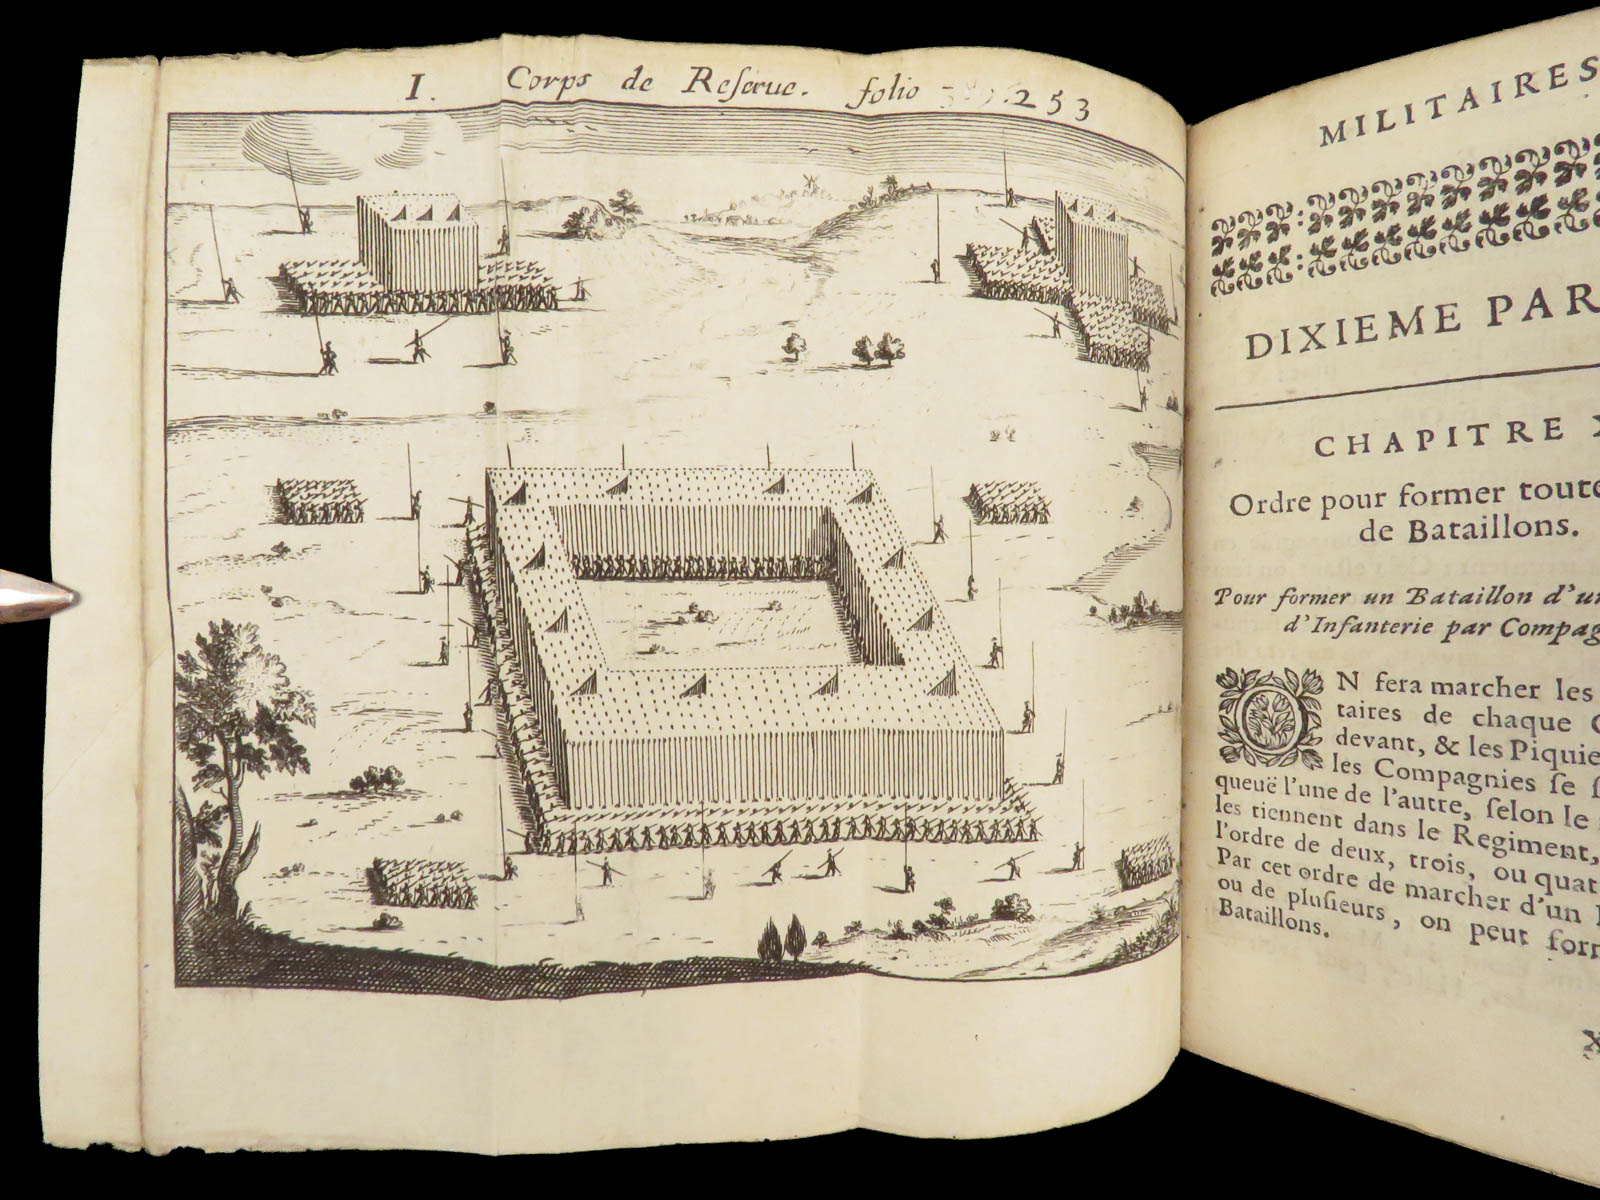 I. Corps de Reſerue. folio 253
MILITAIRES
DIXIEME PAR
CHAPITRE X
Ordre pour former toute
de Bataillons.
Pour former un Bataillon d'un
d'Infanterie par Compag
ON fera marcher les
taires de chaque C
devant, & les Piquie
les Compagnies ſe ſ
queuë l'une de l'autre, ſelon le
les tiennent dans le Regiment,
l'ordre de deux, trois, ou quat
Par cet ordre de marcher d'un
ou de pluſieurs, on peut form
Bataillons.
X